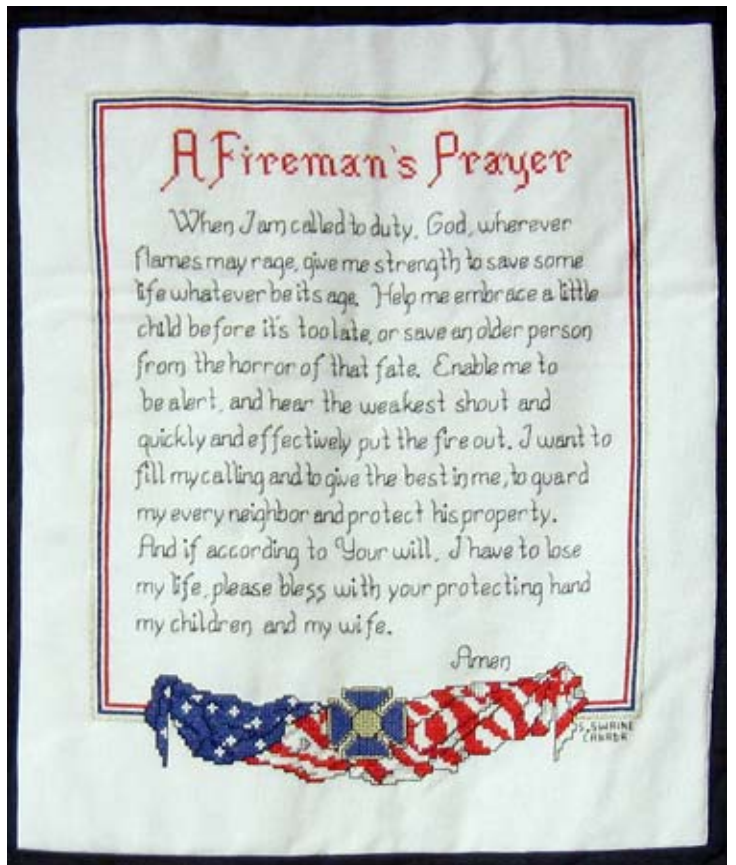 A Fireman's Prayer
When I am called to duty, God, wherever
flames may rage, give me strength to save some
life whatever be its age. Help me embrace a little
child before it's too late, or save an older person
from the horror of that fate. Enable me to
be alert, and hear the weakest shout and
quickly and effectively put the fire out. I want to
fill my calling and to give the best in me, to guard
my every neighbor and protect his property.
And if according to Your will, I have to lose
my life, please bless with your protecting hand
my children and my wife.
Amen
S. SWAINE
CANADA